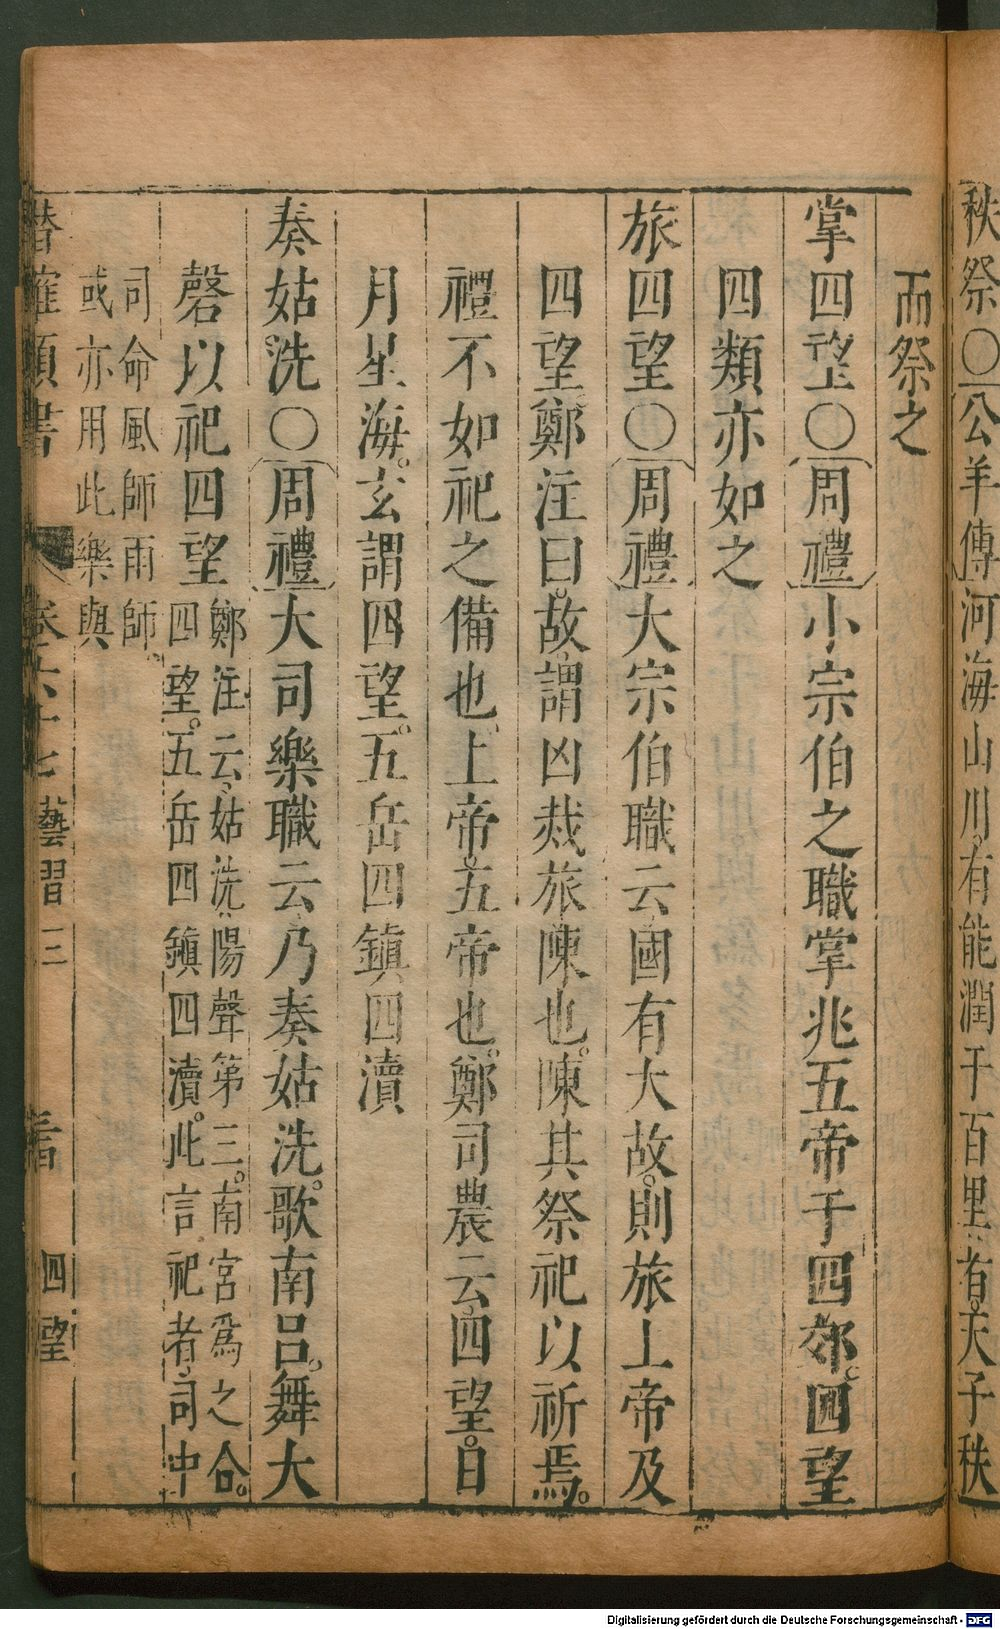 秩祭〇公羊傳河海山川有能潤于百里者天子秩
而祭之
掌四望〇周禮小宗伯之職掌兆五帝于四郊四望
四類亦如之
旅四望〇周禮大宗伯職云國有大故則旅上帝及
四望鄭注曰故謂凶烖旅陳也陳其祭祀以祈焉
禮不如祀之備也上帝五帝也鄭司農云四望日
月星海玄謂四望五岳四鎮四瀆
奏姑洗〇周禮大司樂職云乃奏姑洗歌南呂舞大
磬以祀四望鄭注云姑洗陽聲第三南宮爲之合
四望五岳四鎮四瀆此言祀者司中
司命風師雨師
或亦用此樂與
潛確類書 卷六十七 藝習三 四望
Digitalisierung gefördert durch die Deutsche Forschungsgemeinschaft - DFG